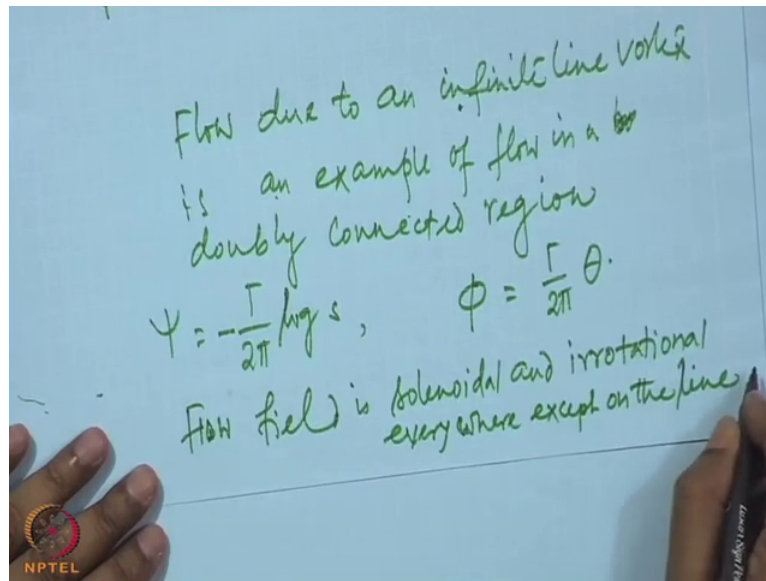 Flow due to an infinite line vortex
is an example of flow in a
doubly connected region
Ψ = -Γ/2π log s, φ = Γ/2π θ.
Flow field is solenoidal and irrotational
everywhere except on the line
NPTEL